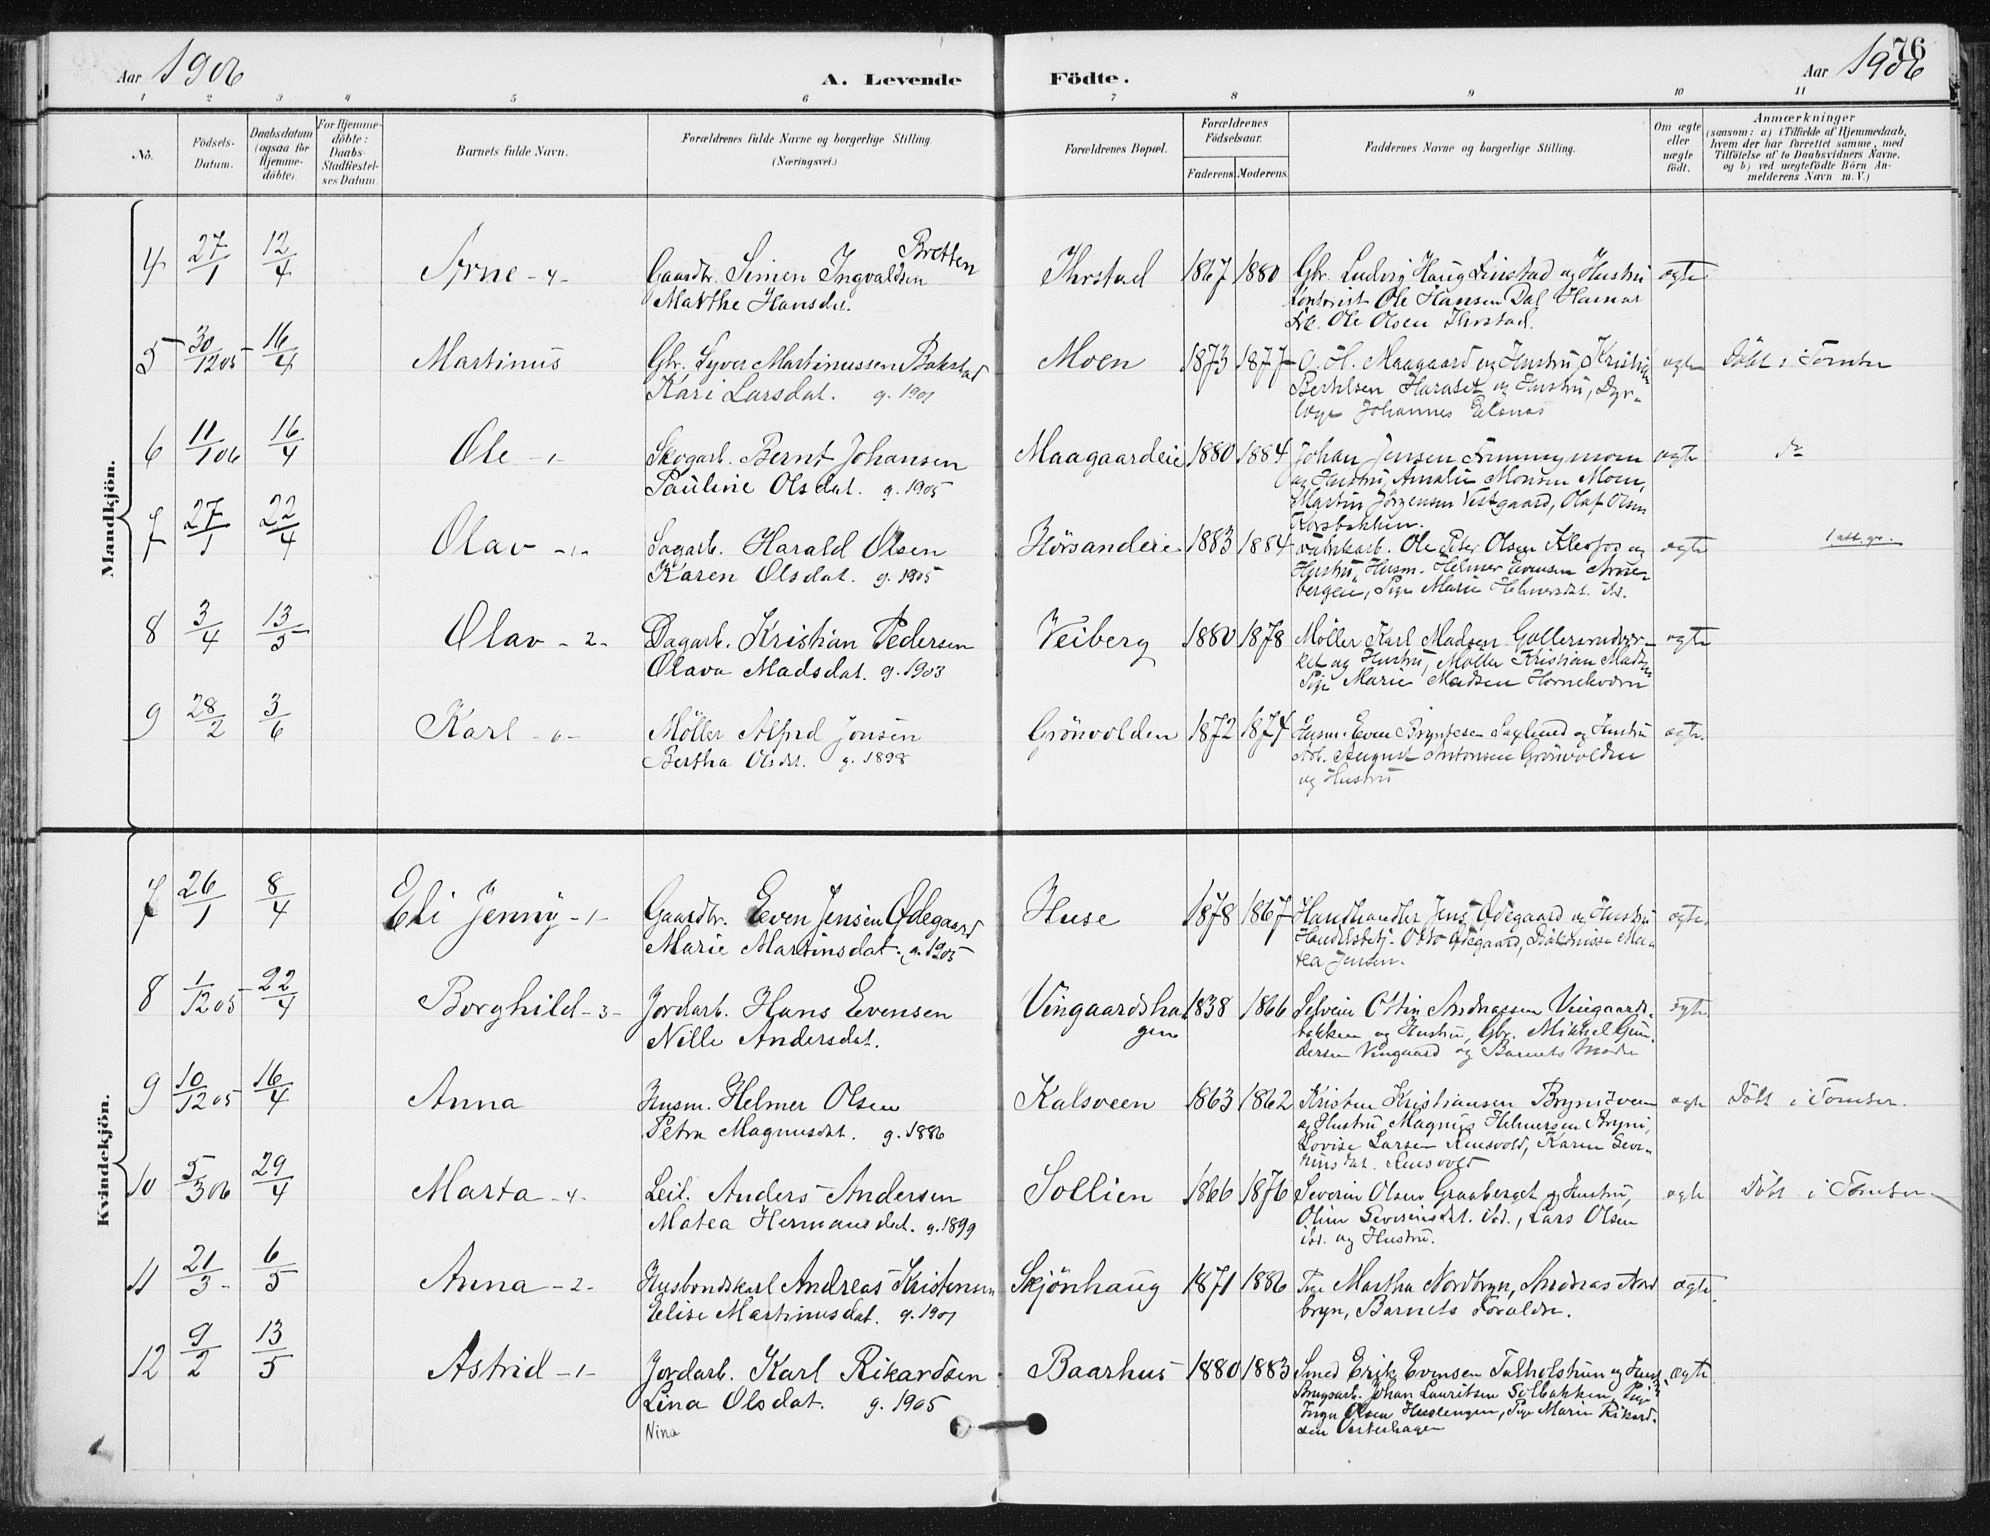 Aar 1906
A. Levende
Födte.
Aar 1906
76
1 2 3 4 5 6 7 8 9 10 11
No.
Födsels-
Datum.
Daabsdatum
(ogsaa for
Hjemme-
döbte).
For Hjemme-
döbte:
Daabs-
Stadfæstel-
ses Datum.
Barnets fulde Navn.
Forældrenes fulde Navne og borgerlige Stilling.
(Næringsvei.)
Forældrenes Bopæl.
Forældrenes
Födselsaar.
Faderens. Moderens.
Faddernes Navne og borgerlige Stilling.
Om ægte
eller
uægte
født.
Anmærkninger
(saasom: a) i Tilfælde af Hjemmedaab,
hvem der har forrettet samme, med
Tilföielse af to Daabsvidners Navne,
og b) ved uægtefödte Börn An-
melderens Navn m. V.)
Mandkjön.
4 27/1 12/4 Arne -4- Gaardbr. Simen Ingvaldsen Bretten Ihrstad 1867 1880 Gbr. Ludvig Haug Linstad og Hustru ægte
Marthe Hansdat.
Kontorist Ole Hansen Dal Hamar
Ole Olsen Ihrstad.
5 30/12 05 16/4 Martinus Gbr. Syver Martinussen Bakstad Moen 1873 1877 O. H. Maagaard og Hustru, Kristian ægte Döbt i Tomter
Kari Larsdat. g. 1901
Bertelsen Haraset og Hustru, Dyr-
læge Johannes
6 11/1 06 16/4 Ole -1- Skogarb. Bernt Johansen Maagaardeie 1880 1884 Johan Jensen ægte do
Pauline Olsdat. g. 1905
og Hustru, Amalie Monsen Moen,
Martin Jörgensen Vestgaard, Olaf Olsen
Korsbakken.
7 27/1 22/4 Olav -1- Sagarb. Harald Olsen Hörsandeie 1883 1884 Ole Peter Olsen Klevfos og ægte 1 att. gr.
Karen Olsdat. g. 1905
Hustru, Husm. Helmer Evensen
bergeie, Pige Marie Helmersdat. ibd.
8 3/4 13/5 Olav -2- Dagarb. Kristian Pedersen Veiberg 1880 1878 Möller Karl Madsen ægte
Olava Madsdat. g. 1903
ket og Hustru, Möller Kristian Madsen
Pige Marie Madsen Hornekværn
9 28/2 3/6 Karl -6- Möller Alfred Jonsen Grönvolden 1872 1874 Husm. Even Bryntesen Saxlund og Hustru ægte
Bertha Olsdat. g. 1898
Arb. August Antonsen Grönvolden
og Hustru
Kvindekjön.
7 26/1 8/4 Eli Jenny -1- Gaardbr. Even Jensen Ødegaard Huse 1878 1867 Handlende Jens Ødegaard og Hustru ægte
Marie Martinsdat. g. 1905
Handelsbetj. Otto Ødegaard, Ma-
tea Jensen.
8 1/12 05 22/4 Borghild -3- Jordarb. Hans Evensen Vingaardsha- 1838 1866 Selveier Ottin Andreassen Vingaards- ægte
Nille Andersdat.
gen
bakken og Hustru, Gbr. Mikkel Gun-
dersen Vingaard og Barnets Moder
9 10/12 05 16/4 Anna Husm. Helmer Olsen Kalsveen 1863 1862 Kristen Kristiansen Brynisveen ægte Döbt i Tomter.
Petra Magnusdat. g. 1886
og Hustru Magnus Helmersen Bryni,
Lovise Larsen Rensvold, Karen Seve-
rinsdat. Rensvold
10 5/3 06 29/4 Marta -4- Leil. Anders Andersen Sollien 1866 1876 Severin Olsen Graaberget og Hustru, ægte Döbt i Tomter
Matea Hermansdat. g. 1899
Oline Severinsdat. ibd., Lars Olsen
ibd. og Hustru.
11 21/3 6/5 Anna -2- Husbondskarl Andreas Kristensen Skjönhaug 1871 1886 Pige Martha Nordbryn, Andreas Nord ægte
Elise Martinusdat. g. 1901
bryn, Barnets Forældre.
12 9/2 13/5 Astrid -1- Jordarb. Karl Rikardsen Baarhus 1880 1883 Smed Erik Evensen Talholstuen og Hustru ægte
Lina Olsdat. g. 1905
Nina
Brugsarb. Johan Lauritsen Solbakken, Pige
Inga Olsen Huslengen, Pige Marie Rikard-
sen Vesterhagen